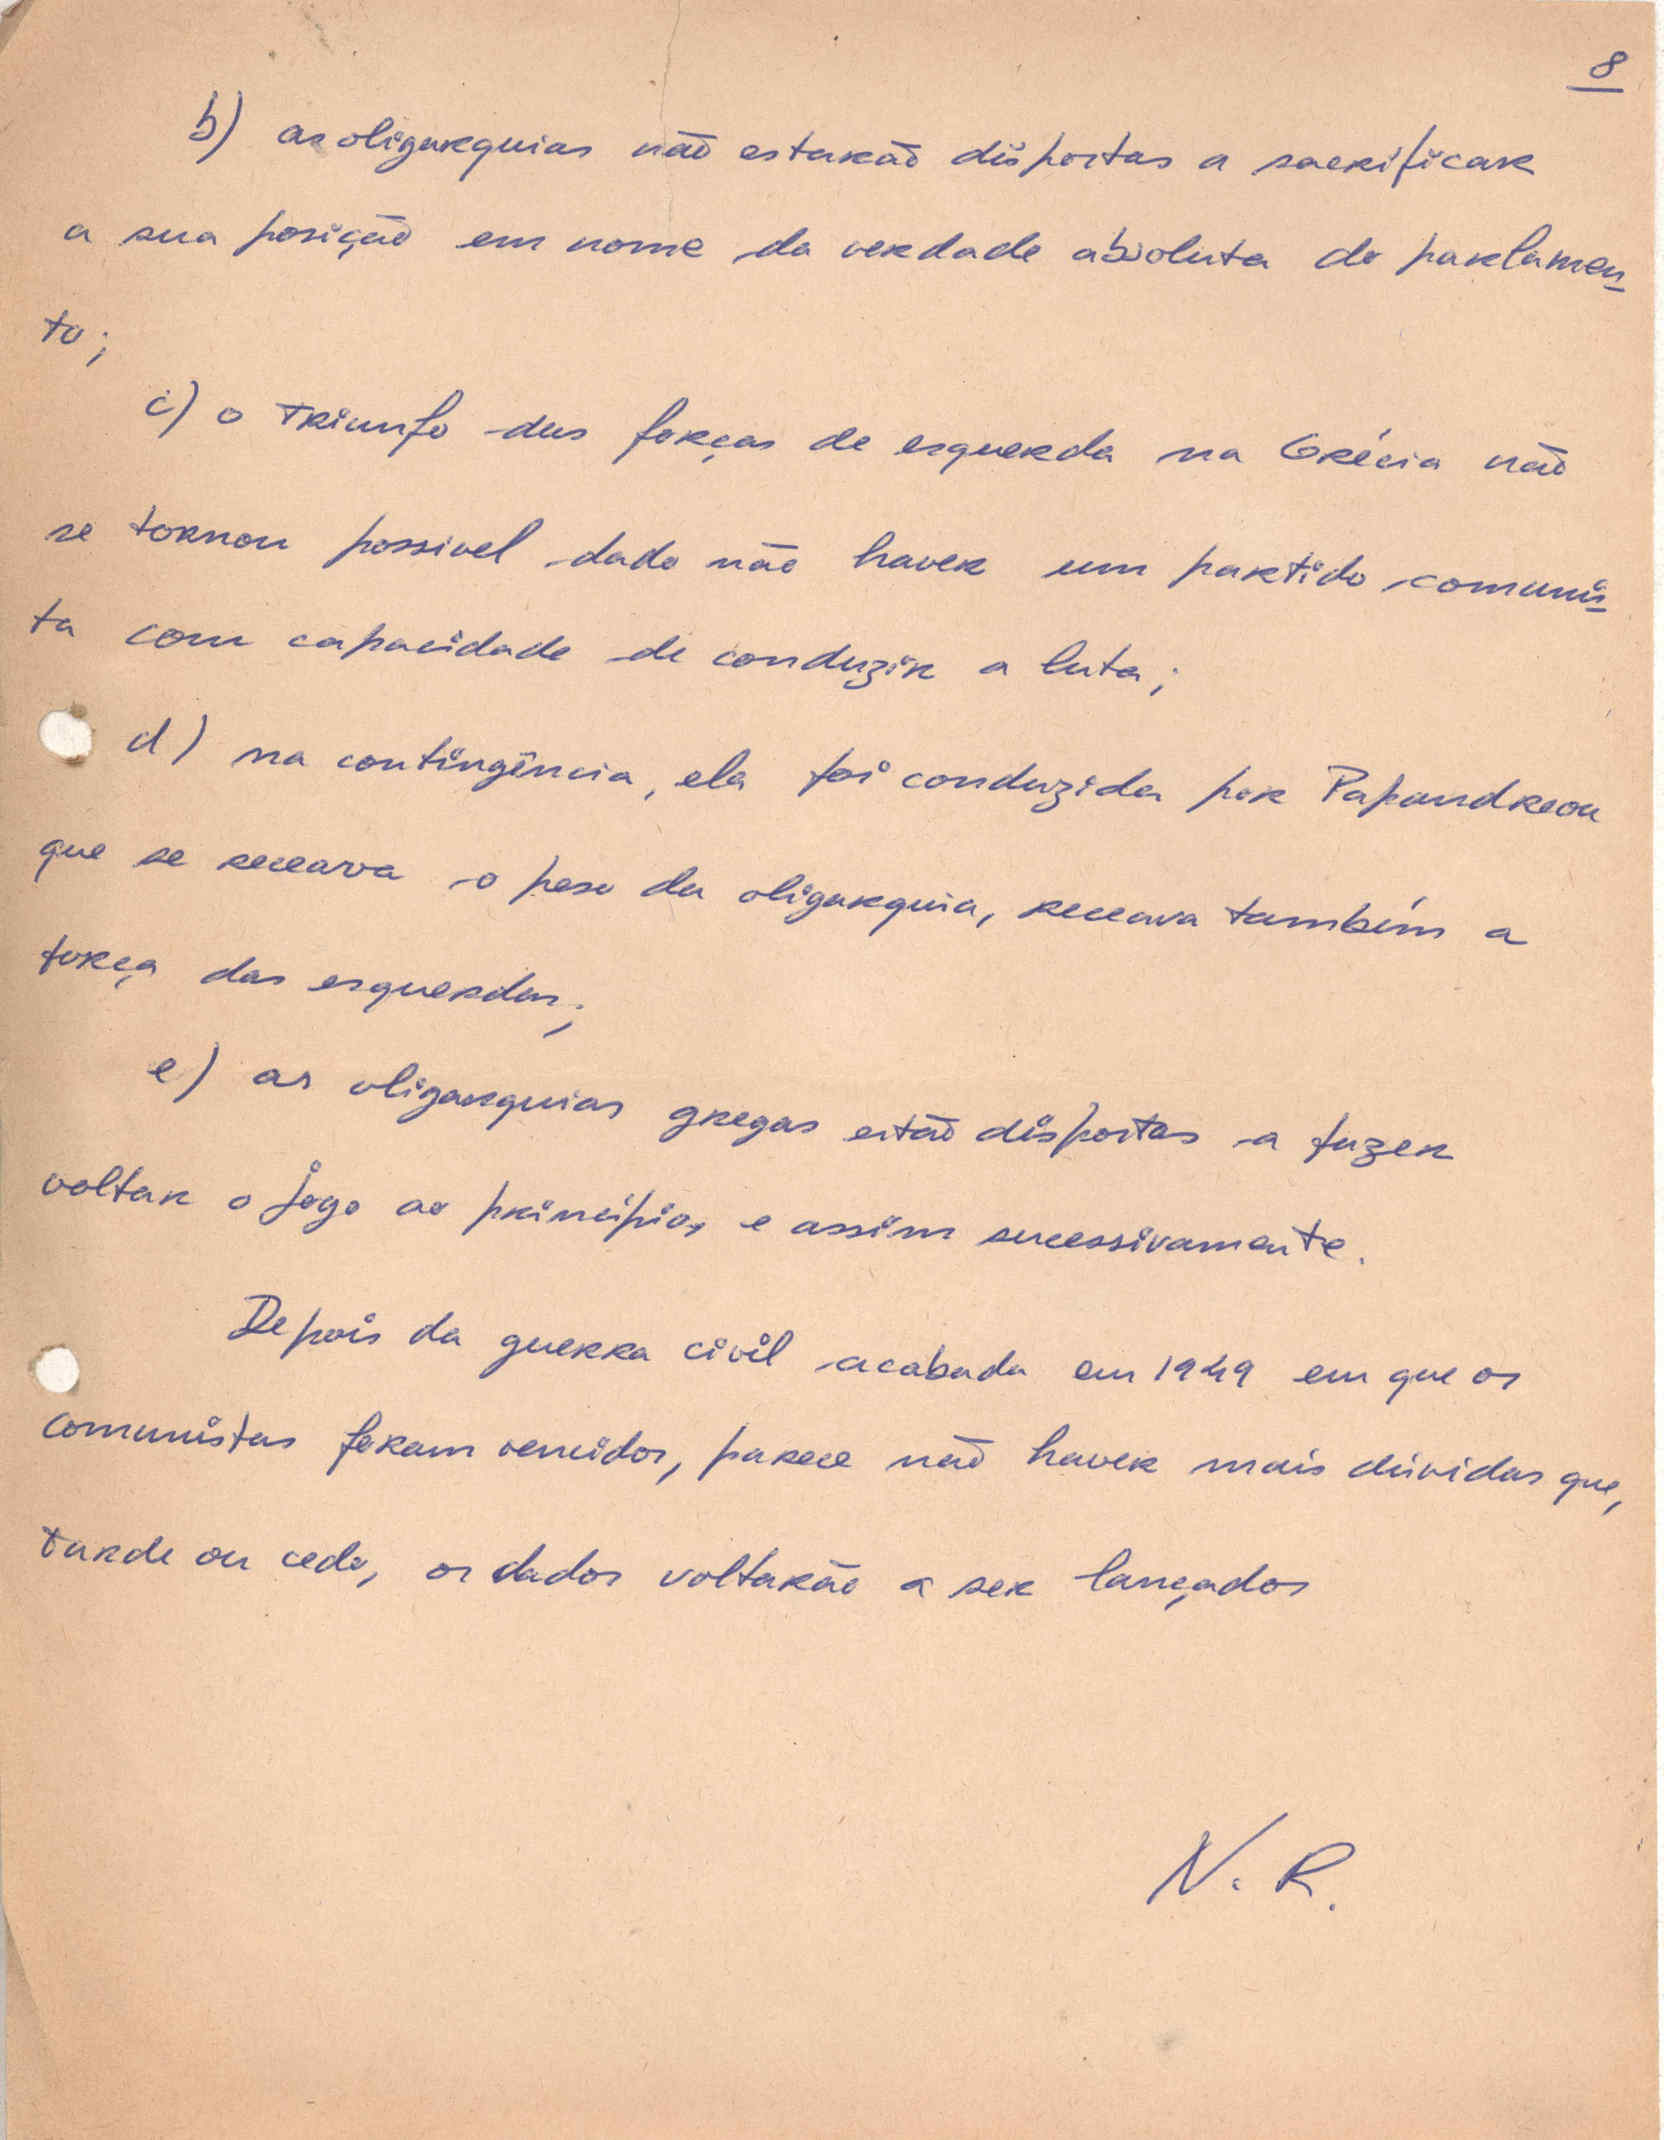 8
b) as oligarquias não estarão dispostas a sacrificar
a sua posição em nome da verdade absoluta do parlamen-
to;
c) o triunfo das forças de esquerda na Grécia não
se tornou possivel dado não haver um partido comunis-
ta com capacidade de conduzir a luta;
d) na contingência, ela foi conduzida por Papandreou
que se receava o peso da oligarquia, receava também a
força das esquerdas;
e) as oligarquias gregas estão dispostas a fazer
voltar o jogo ao princípio, e assim sucessivamente.
Depois da guerra civil acabada em 1949 em que os
comunistas foram vencidos, parece não haver mais dúvidas que,
tarde ou cedo, os dados voltarão a ser lançados
N. R.